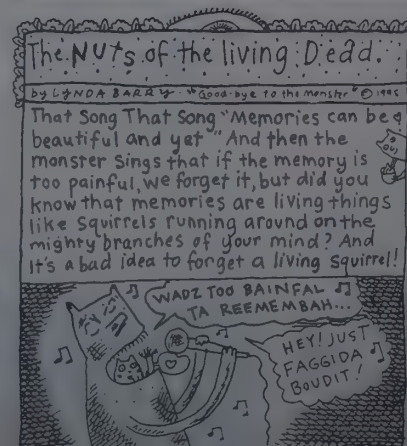 The NUts of the living Dead.
by LYNDA BARRY - "Good-bye to the monster" © 1995
That Song That Song "Memories can be
beautiful and yet" And then the
monster sings that if the memory is
too painful, we forget it, but did you
know that memories are living things
like squirrels running around on the
mighty branches of your mind? And
It's a bad idea to forget a living squirrel!
WADZ TOO BAINFAL
TA REEMEMBAH...
HEY! JUST
FAGGIDA
BOUDIT!